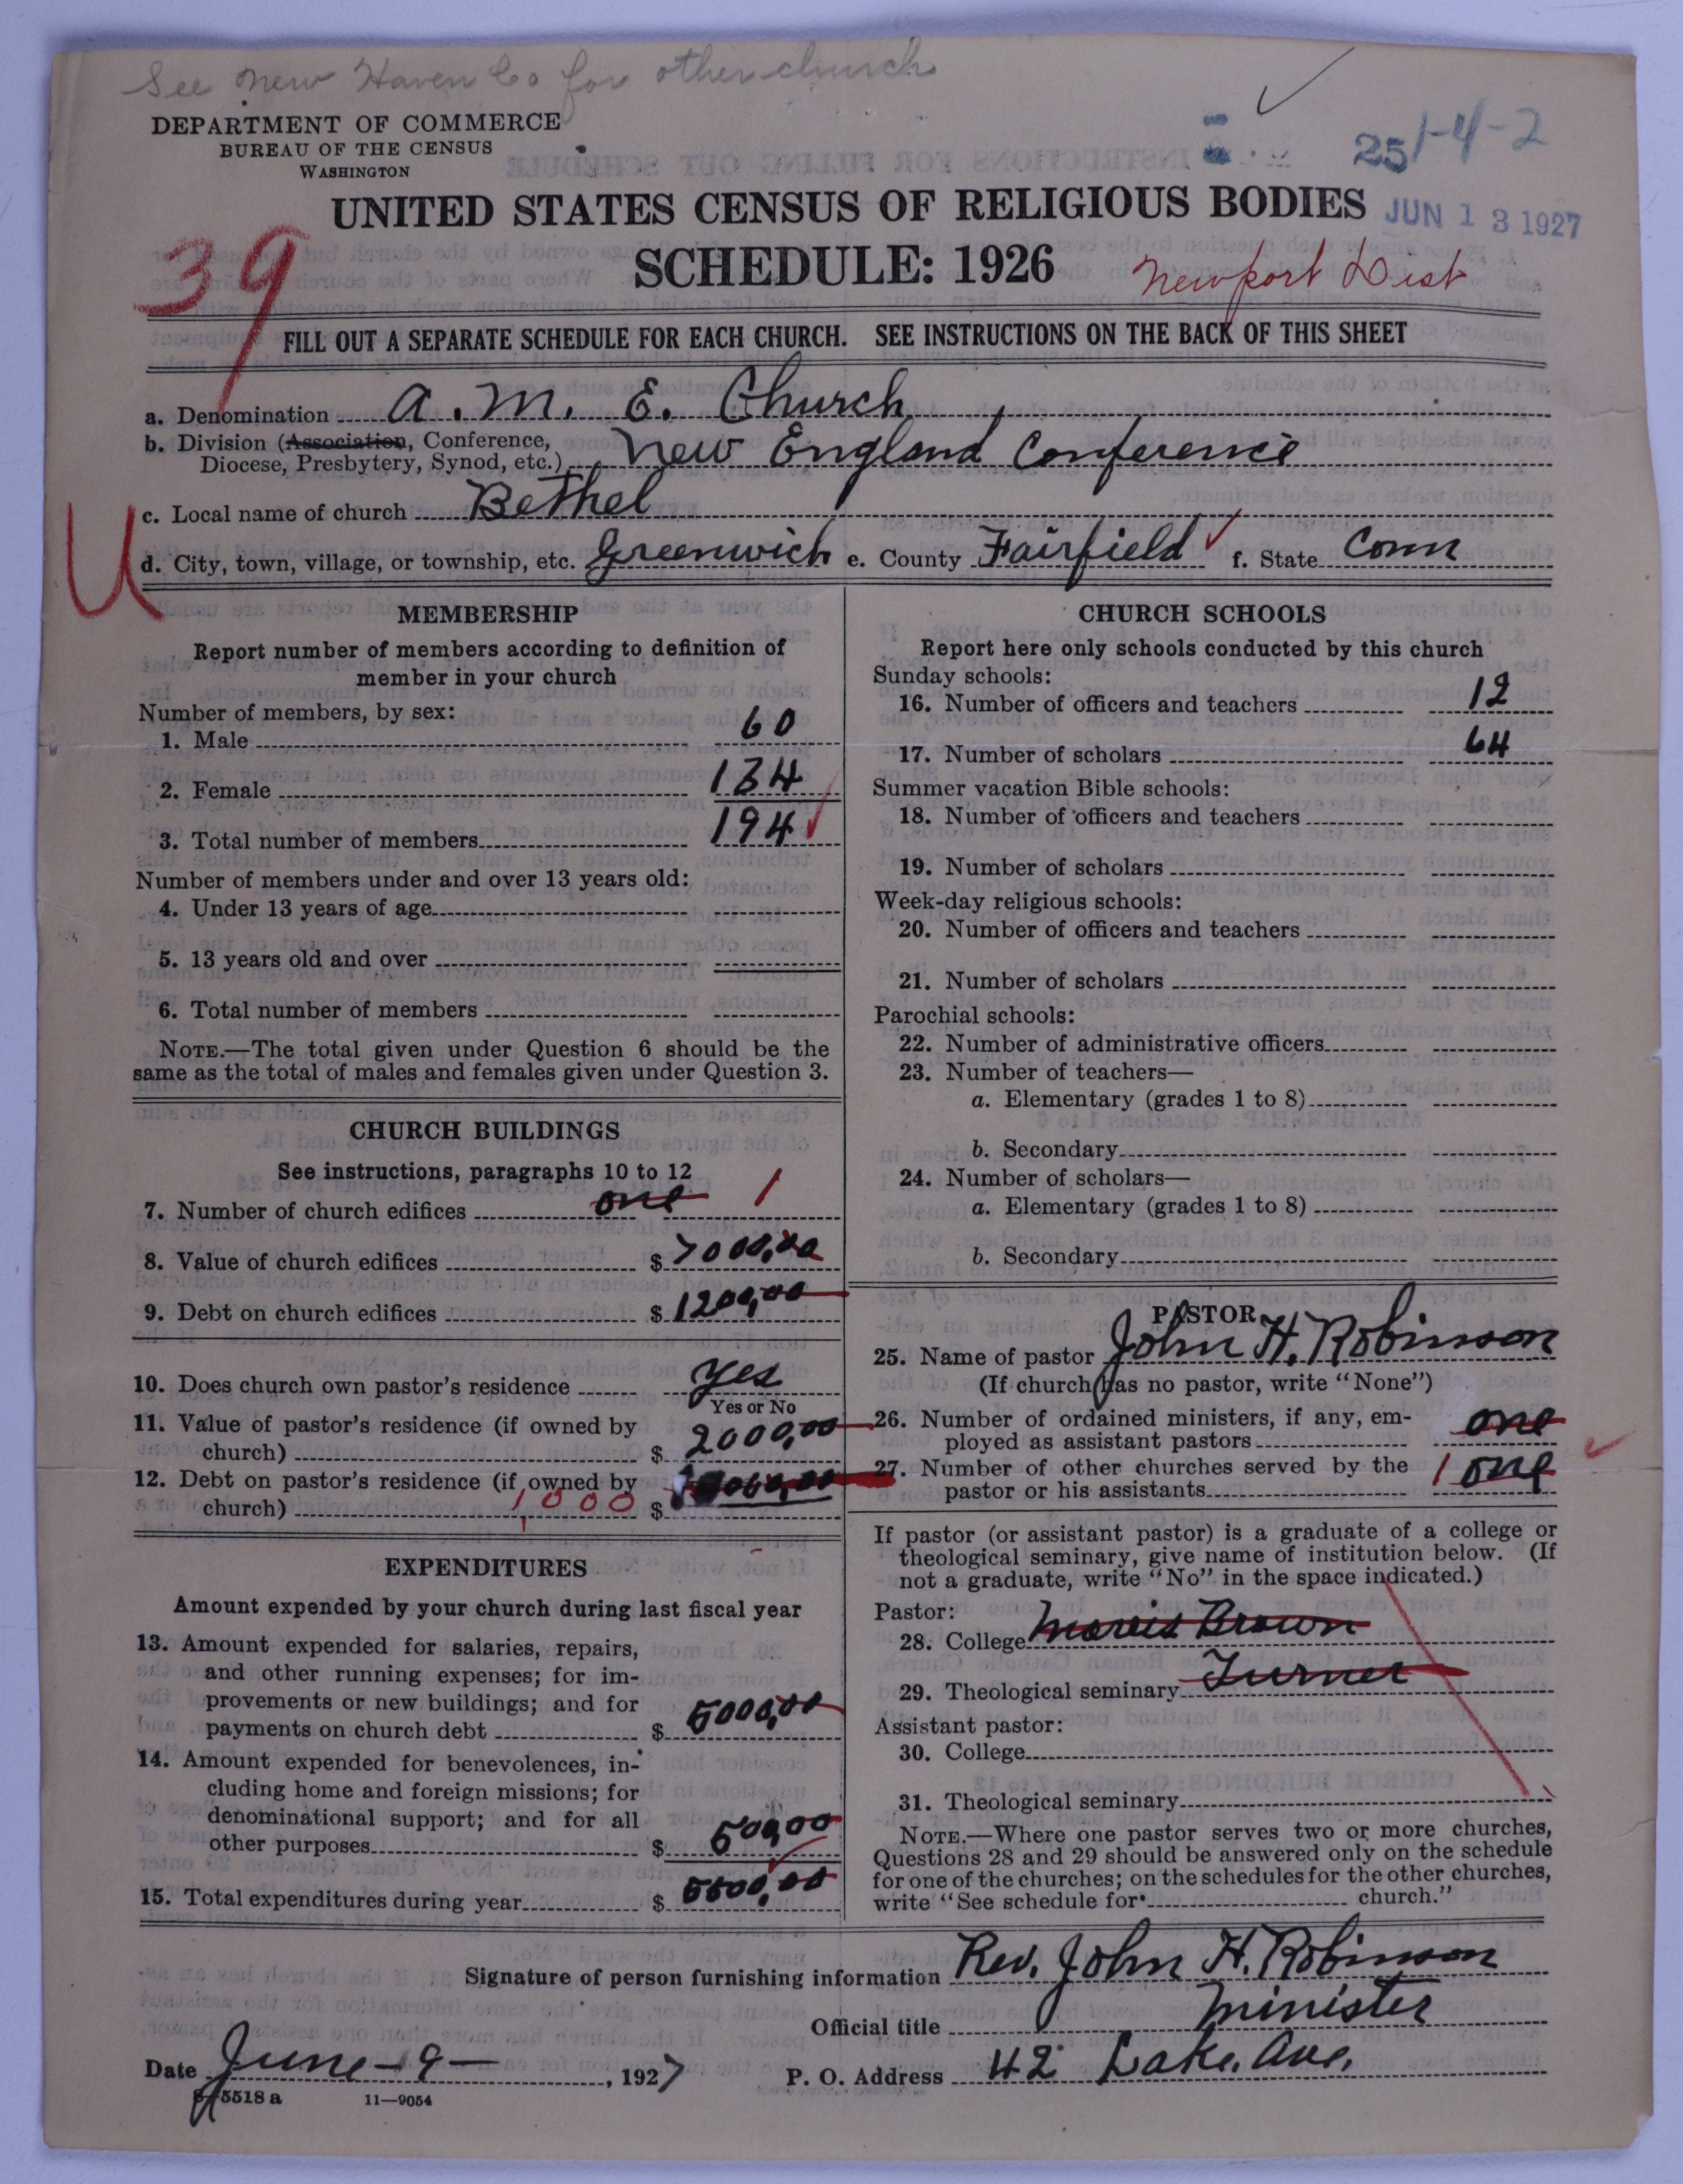 See New Haven Co for other church
DEPARTMENT OF COMMERCE
BUREAU OF THE CENSUS
WASHINGTON
251-4-2
UNITED STATES CENSUS OF RELIGIOUS BODIES
JUN 13 1927
SCHEDULE: 1926
39
Newport Dist
FILL OUT A SEPARATE SCHEDULE FOR EACH CHURCH. SEE INSTRUCTIONS ON THE BACK OF THIS SHEET
a. Denomination A. M. E. Church
b. Division (Association, Conference,
Diocese, Presbytery, Synod, etc.) New England Conference
c. Local name of church Bethel
U
d. City, town, village, or township, etc. Greenwich e. County Fairfield f. State Conn
MEMBERSHIP
Report number of members according to definition of
member in your church
Number of members, by sex:
1. Male 60
2. Female 134
3. Total number of members 194
Number of members under and over 13 years old:
4. Under 13 years of age
5. 13 years old and over
6. Total number of members
NOTE.—The total given under Question 6 should be the
same as the total of males and females given under Question 3.
CHURCH BUILDINGS
See instructions, paragraphs 10 to 12
7. Number of church edifices one 1
8. Value of church edifices $ 7000,00
9. Debt on church edifices $ 1200,00
10. Does church own pastor's residence yes
Yes or No
11. Value of pastor's residence (if owned by
church) $ 2000,00
12. Debt on pastor's residence (if owned by
church) 1,000 $
EXPENDITURES
Amount expended by your church during last fiscal year
13. Amount expended for salaries, repairs,
and other running expenses; for im-
provements or new buildings; and for
payments on church debt $ 5000,00
14. Amount expended for benevolences, in-
cluding home and foreign missions; for
denominational support; and for all
other purposes $ 500,00
15. Total expenditures during year $ 5500,00
CHURCH SCHOOLS
Report here only schools conducted by this church
Sunday schools:
16. Number of officers and teachers 12
17. Number of scholars 64
Summer vacation Bible schools:
18. Number of officers and teachers
19. Number of scholars
Week-day religious schools:
20. Number of officers and teachers
21. Number of scholars
Parochial schools:
22. Number of administrative officers
23. Number of teachers—
a. Elementary (grades 1 to 8)
b. Secondary
24. Number of scholars—
a. Elementary (grades 1 to 8)
b. Secondary
PASTOR
25. Name of pastor John H. Robinson
(If church has no pastor, write "None")
26. Number of ordained ministers, if any, em-
ployed as assistant pastors one
27. Number of other churches served by the
pastor or his assistants 1 one
If pastor (or assistant pastor) is a graduate of a college or
theological seminary, give name of institution below. (If
not a graduate, write "No" in the space indicated.)
Pastor:
28. College Morris Brown
29. Theological seminary Turner
Assistant pastor:
30. College
31. Theological seminary
NOTE.—Where one pastor serves two or more churches,
Questions 28 and 29 should be answered only on the schedule
for one of the churches; on the schedules for the other churches,
write "See schedule for church."
Signature of person furnishing information Rev. John H. Robinson
Official title Minister
Date June-9-, 1927 P. O. Address 42 Lake. Ave.
8-5518 a 11-9054